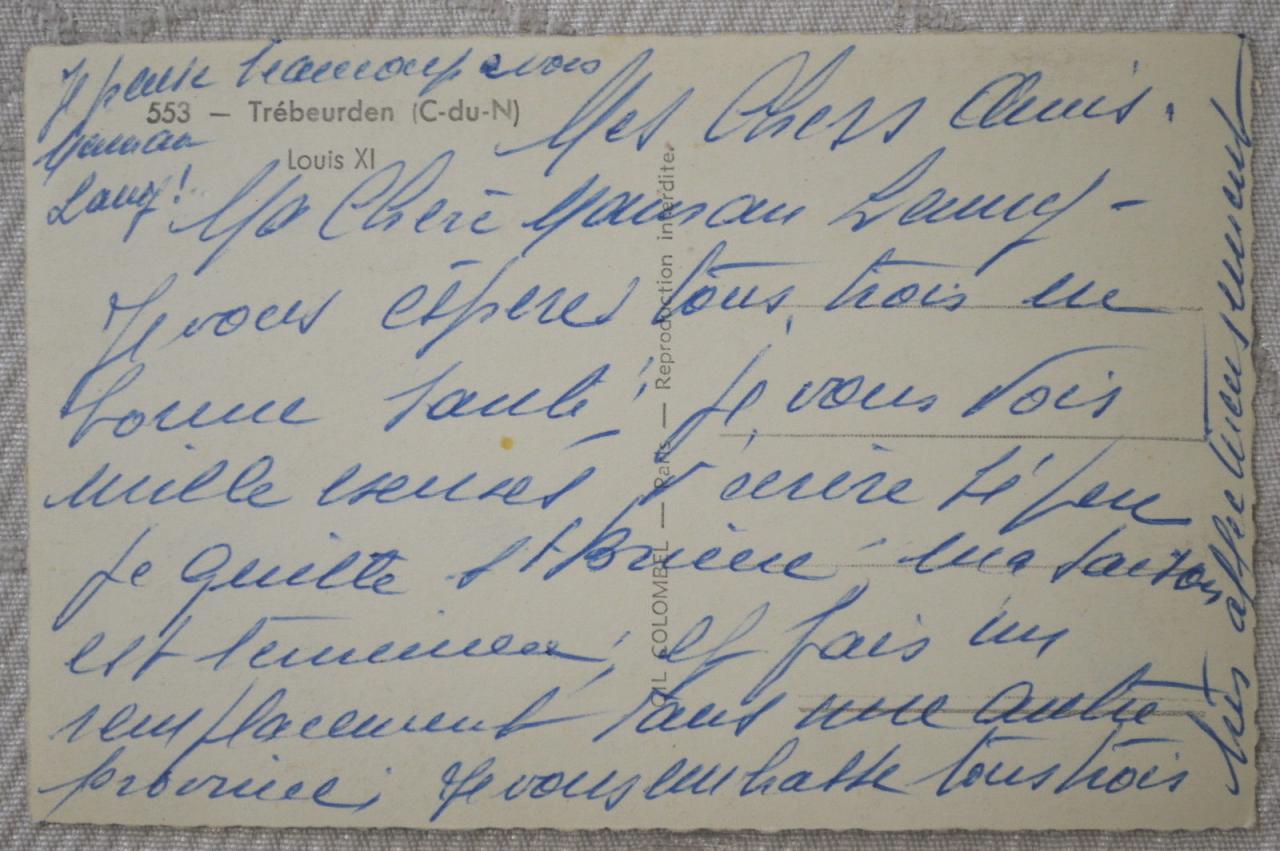 Je pense beaucoup a vous
Maman
Lamy!
553 — Trébeurden (C-du-N)
Louis XI
Mes Chers Amis.
Ma Chère Maman Lamy -
Je vous éspères tous, trois en
bonne santé; je vous dois
mille excuses d'écrire si peu
je quitte St Brieuc, ma saison
est terminée; et fais un
remplacement dans une autre
province; Je vous embrasse tous trois
très affectueusement
GIL COLOMBEL — Paris — Reproduction interdite.